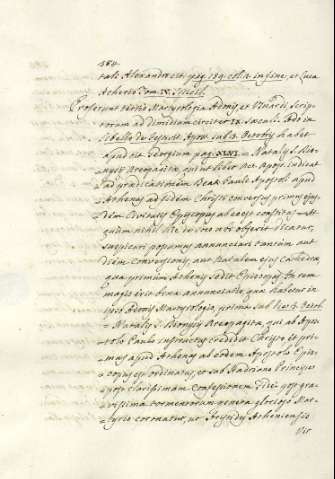 184.
tali Alexandrinis pag. 189. col. 2. in fine, et Luca
Acherio Tom. IV.
Proferunt tertio Martyrologia Adonis et Usuardi, Scrip=
torum ad dimidium circiter IX. saeculi. Ado in
Libello de Festivit. Apost. sub 3. Octobris habet
apud eum Georgium pag. XLVI. = Natalis S. Dio=
nysii Areopagitae, qui ut liber Act. Apost. indicat
ad praedicationem Beati Pauli Apostoli apud
Athenas ad fidem Christi conversus primus ejus=
dem Civitatis Episcopus ab eo est constitutus = At
quidem nihil hic de suo obitu dicatur,
suspicari possumus annunciari tantum aut
diem Conversionis, aut Natalem ejus Cathedrae,
qua primum Athenis sedit Episcopus. In rem
magis est bona annunciatio, qua habetur in
ipso Adonis Martyrologio, primo sub die 3. Octob.
= Natalis S. Dionysii Areopagitae, qui ab Apos=
tolo Paulo instructus credidit Christo, et pri=
mus apud Athenas ab eodem Apostolo Epis=
copus est ordinatus, et sub Hadriano Principe
post clarissimam Confessionem fidei, post gra=
vissima tormentorum genera glorioso Mar=
tyrio coronatur, ut Aristides Atheniensis
Vir